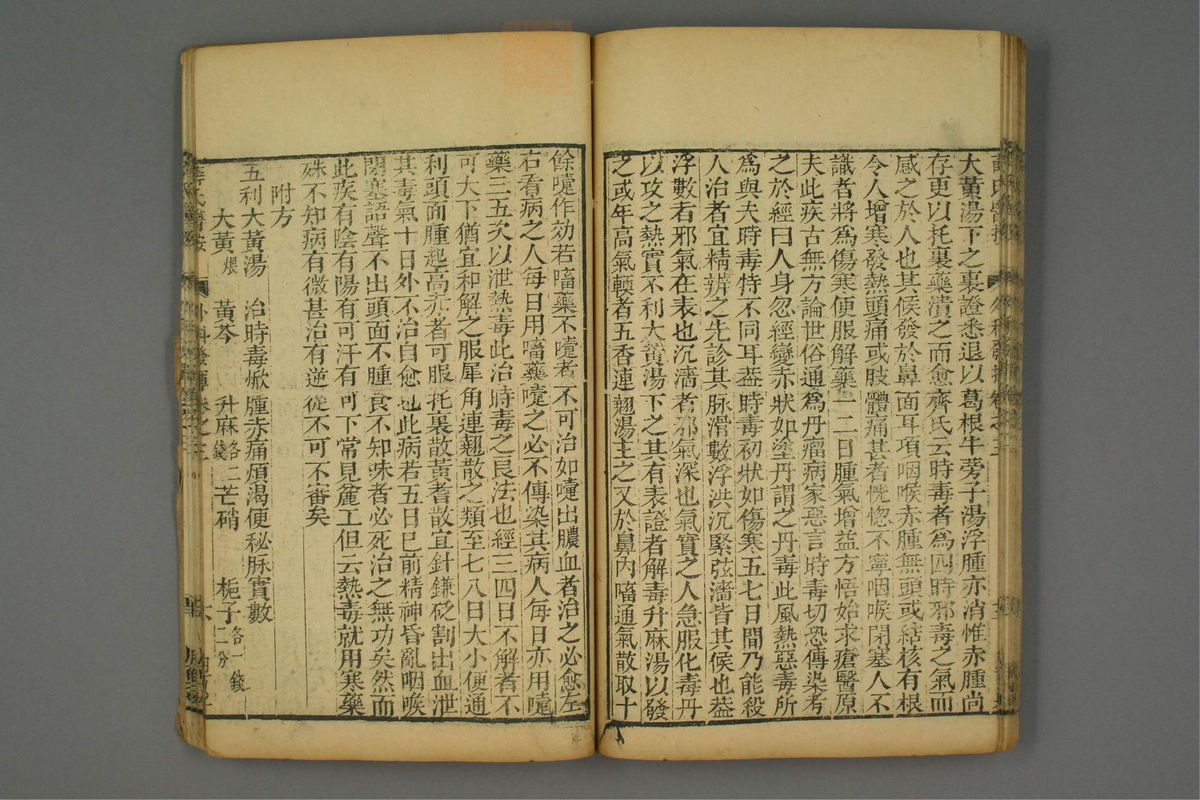 大黃湯下之裏證悉退以葛根牛蒡子湯浮腫亦消惟赤腫尚
存更以托裏藥潰之而愈齊氏云時毒者為四時邪毒之氣而
感之於人也其候發於鼻面耳項咽喉赤腫無頭或結核有根
令人增寒發熱頭痛或肢體痛甚者恍惚不寧咽喉閉塞人不
識者將為傷寒便服解藥一二日腫氣增益方悟始求瘡醫原
夫此疾古無方論世俗通為丹瘤病家惡言時毒切恐傳染考
之於經曰人身忽經變赤狀如塗丹謂之丹毒此風熱惡毒所
為與夫時毒特不同耳蓋時毒初狀如傷寒五七日間乃能殺
人治者宜精辨之先診其脉滑數浮洪沉緊弦濇皆其候也蓋
浮數者邪氣在表也沉濇者邪氣深也氣實之人急服化毒丹
以攻之熱實不利大黃湯下之其有表證者解毒升麻湯以發
之或年高氣輭者五香連翹湯主之又於鼻內㗜通氣散取十
餘嚏作効若㗜藥不嚏者不可治如嚏出膿血者治之必愈左
右看病之人每日用㗜藥嚏之必不傳染其病人每日亦用嚏
藥三五次以泄熱毒此治時毒之良法也經三四日不解者不
可大下猶宜和解之服犀角連翹散之類至七八日大小便通
利頭面腫起高亢者可服托裏散黃耆散宜針鎌砭割出血泄
其毒氣十日外不治自愈也此病若五日已前精神昏亂咽喉
閉塞語聲不出頭面不腫食不知味者必死治之無功矣然而
此疾有陰有陽有可汗有可下常見麄工但云熱毒就用寒藥
殊不知病有微甚治有逆從不可不審矣
附方
五利大黃湯 治時毒焮腫赤痛煩渴便秘脉實數
大黃煨 黃芩 升麻各二錢 芒硝 梔子各一錢二分
薛氏醫按 外科發揮卷之三